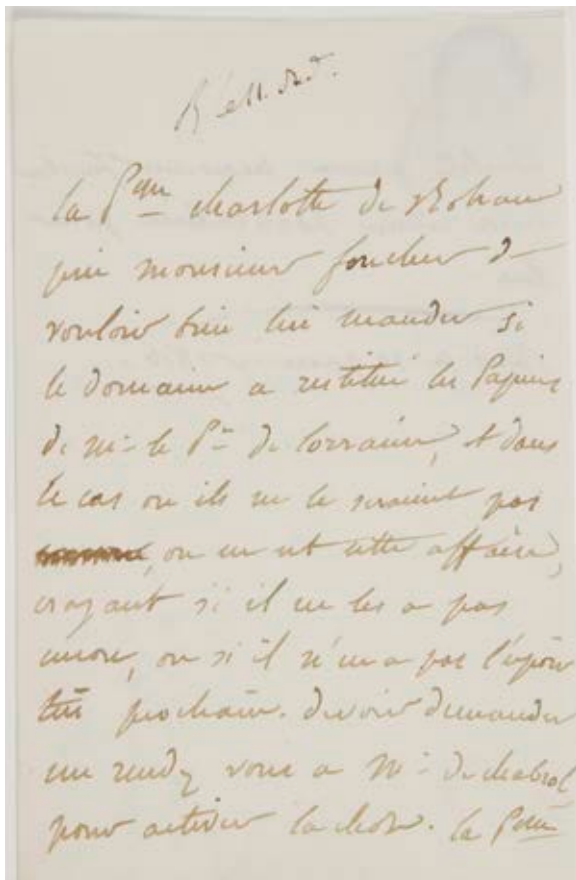 la Psse charlotte de Rohan
prie monsieur foucher de
vouloir bien lui mander si
le domaine a restitué les Papiers
de Mr le Pce de Lorraine, et dans
le cas ou ils ne le seraient pas
ou en est cette affaire,
croyant si il ne les a pas
encore, ou si il n'en a pas l'espoir
très prochain. devoir demander
un rendez vous a Mr de chabrol
pour activer la chose. la Psse